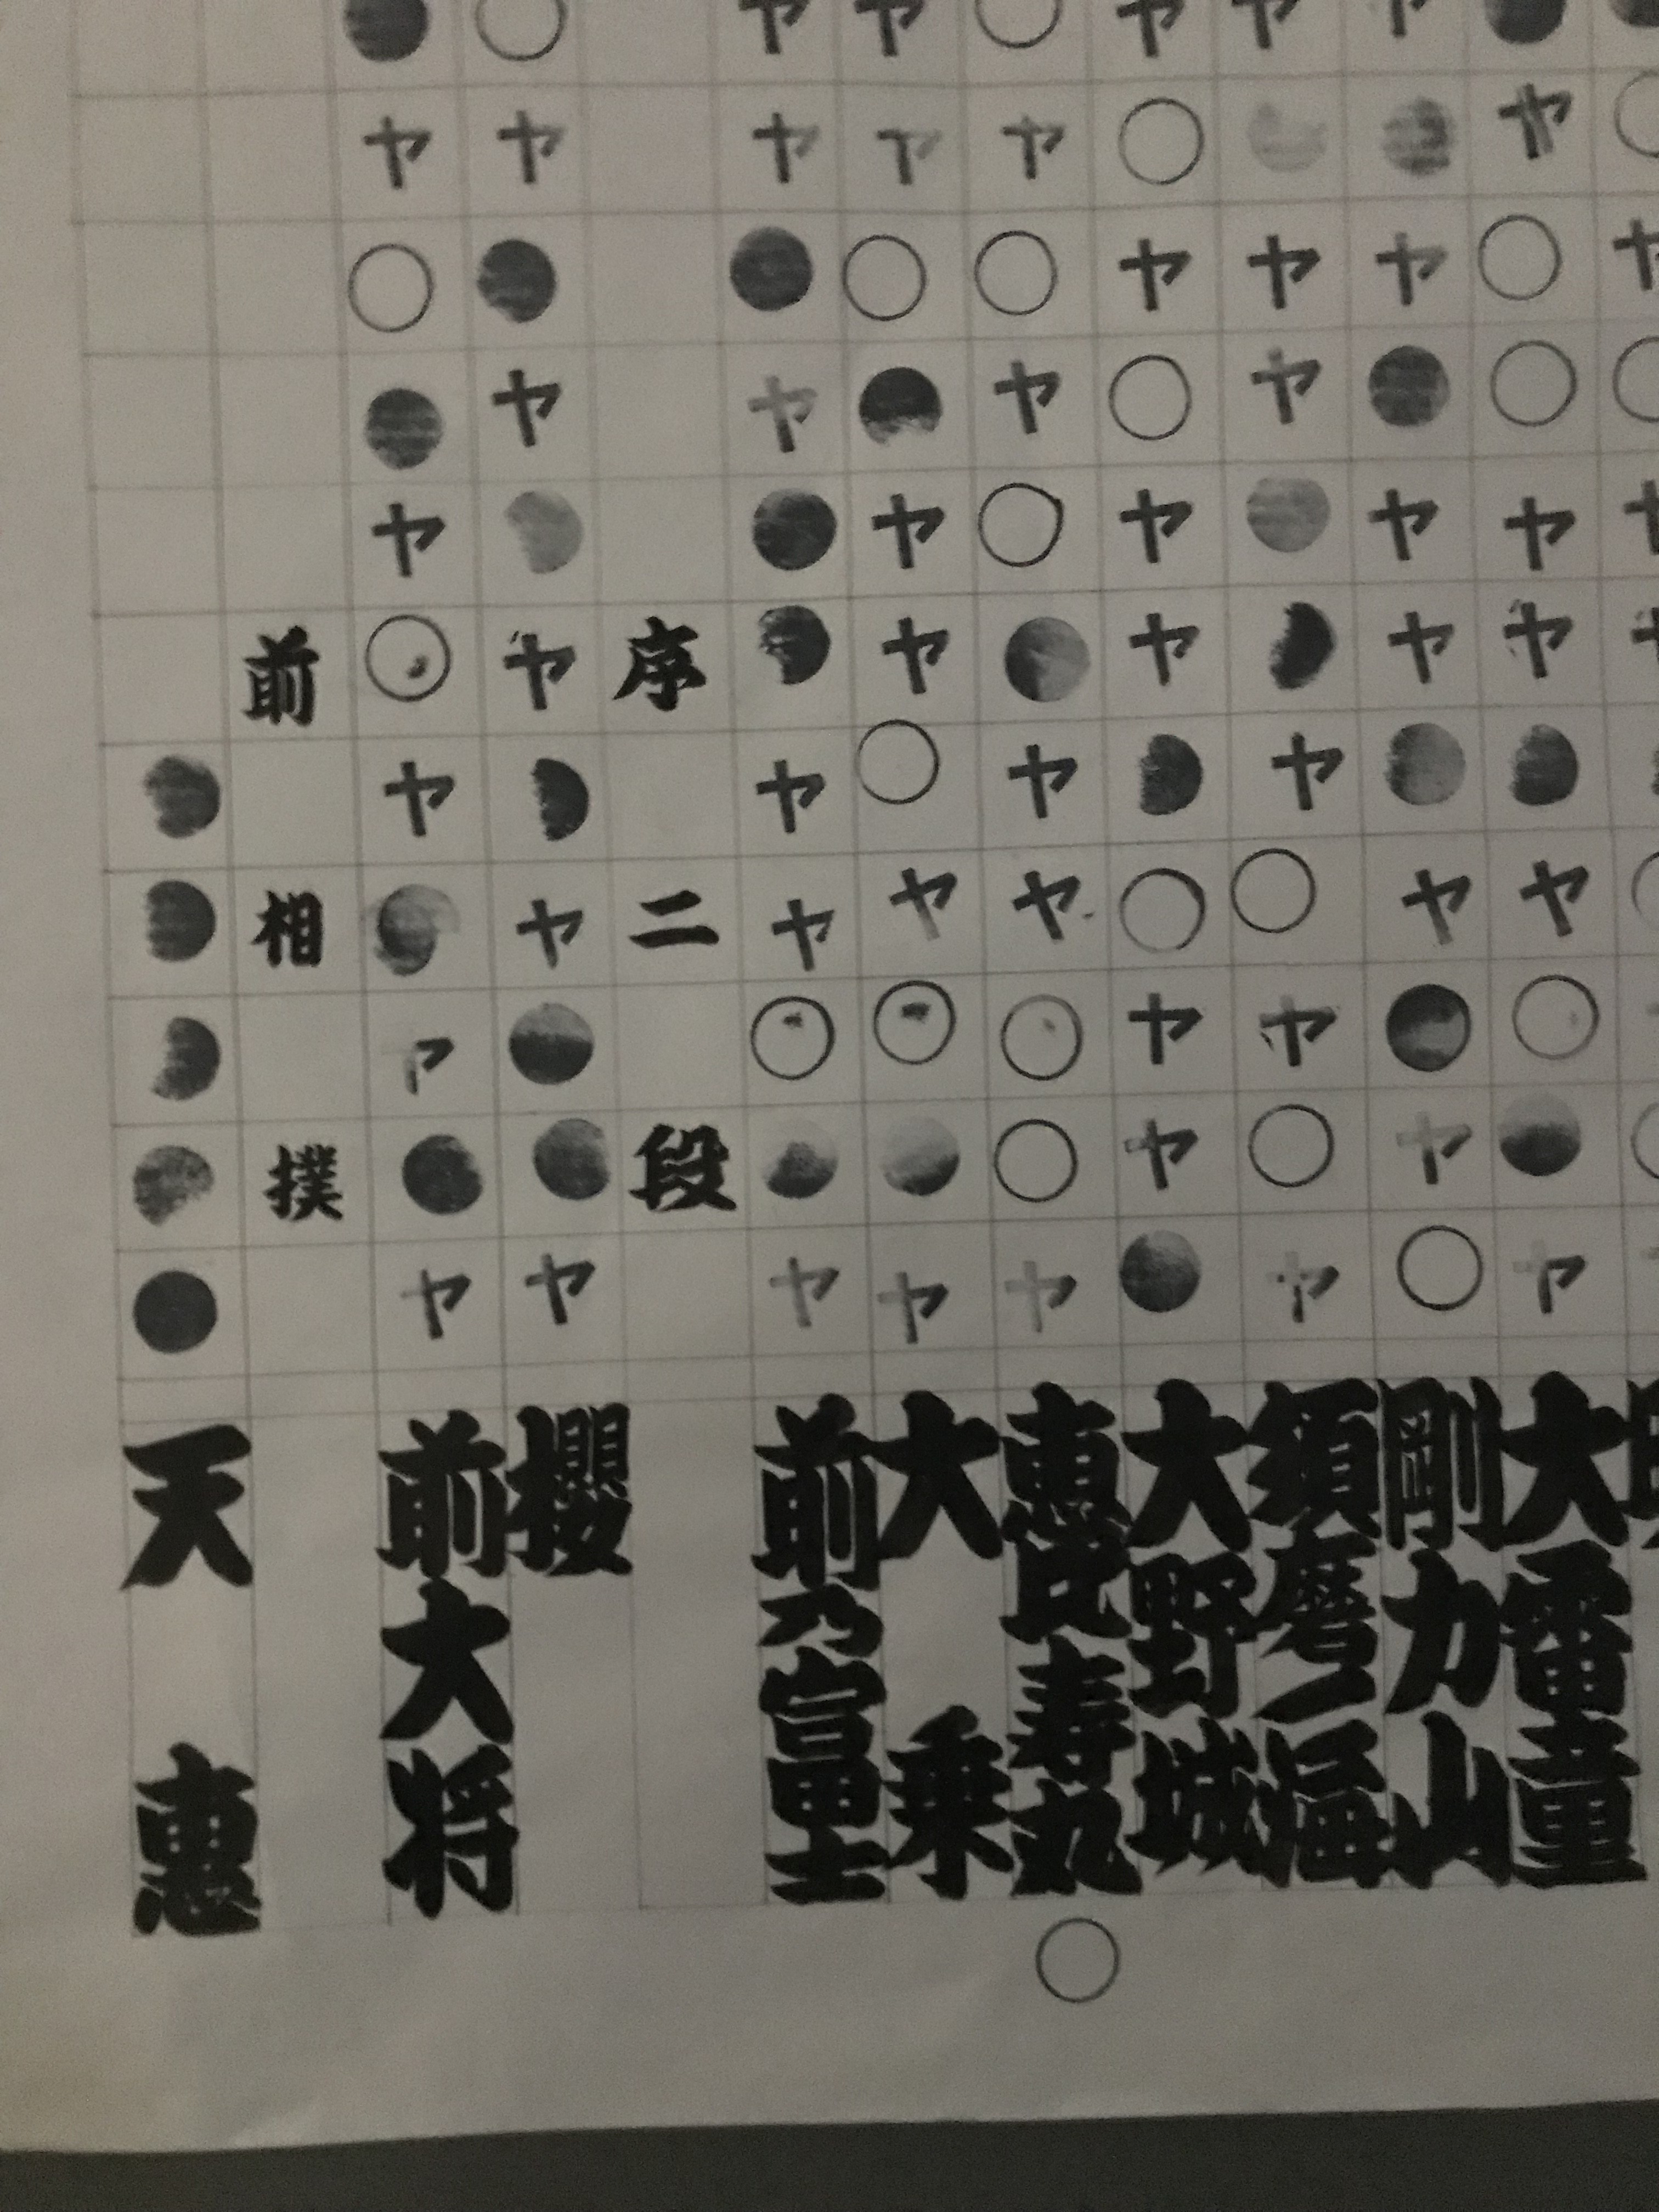 ●ヤ○○ヤヤ●ヤ○●ヤ大雷童
ヤ●ヤ●ヤヤ●ヤ●ヤ○剛力山
ヤ●ヤヤ●●ヤ○ヤ○ヤ須磨ノ福
ヤ○ヤ○ヤヤ●○ヤヤ●大野城
○ヤ○ヤ○●ヤヤ○○ヤ惠比寿丸○
ヤヤ○●ヤヤ○ヤ○●ヤ大乗
ヤヤ●ヤ●●ヤヤ○●ヤ前乃富士
序二段
○ヤ●ヤ●ヤ●ヤ●●ヤ櫻
●ヤ○●ヤ○ヤ●ヤ●ヤ前大将
前相撲
●●●●●天惠